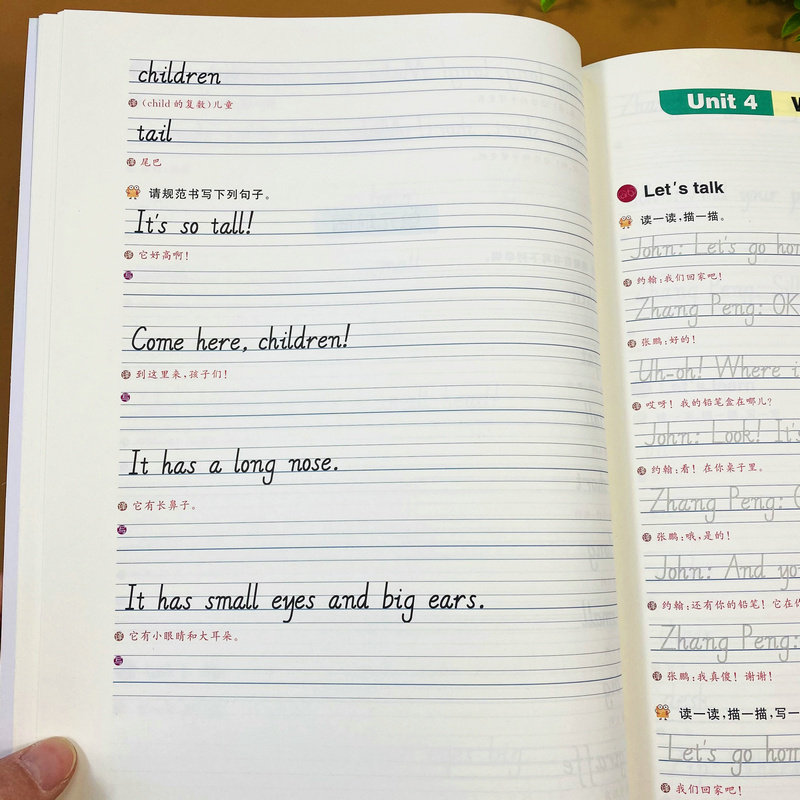 children
译 (child 的复数)儿童
tail
译 尾巴
请规范书写下列句子。
It's so tall!
译 它好高啊!
写
Come here, children!
译 到这里来,孩子们!
写
It has a long nose.
译 它有长鼻子。
写
It has small eyes and big ears.
译 它有小眼睛和大耳朵。
写
Unit 4
Let's talk
读一读,描一描。
John: Let's go
译 约翰:我们回家吧!
Zhang Peng: OK
译 张鹏:好的!
Uh-oh! Where
译 哎呀! 我的铅笔盒在哪儿?
John: Look! It's
译 约翰:看! 在你桌子里。
Zhang Peng:
译 张鹏:哦,是的!
John: And
译 约翰:还有你的铅笔! 它在
Zhang Peng:
译 张鹏:我真傻! 谢谢!
读一读,描一描,写一
Let's go
译 我们回家吧!